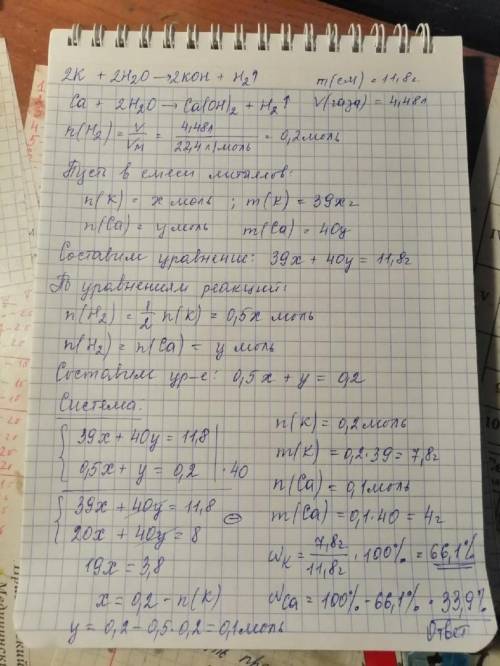 2K + 2H₂O → 2KOH + H₂↑
m(см) = 11,8г
Ca + 2H₂O → Ca(OH)₂ + H₂↑
V(газа) = 4,48л
n(H₂) = V/Vm = 4,48л/22,4 л/моль = 0,2 моль
Пусть в смеси металлов:
n(K) = x моль ; m(K) = 39x г
n(Ca) = y моль m(Ca) = 40y
Составим уравнение: 39x + 40y = 11,8г
По уравнениям реакций:
n(H₂) = 1/2 n(K) = 0,5x моль
n(H₂) = n(Ca) = y моль
Составим ур-е: 0,5x + y = 0,2
Система:
39x + 40y = 11,8
0,5x + y = 0,2 | · 40
39x + 40y = 11,8
20x + 40y = 8
19x = 3,8
x = 0,2 - n(K)
y = 0,2 - 0,5·0,2 = 0,1 моль
n(K) = 0,2 моль
m(K) = 0,2·39 = 7,8г
n(Ca) = 0,1 моль
m(Ca) = 0,1·40 = 4г
ωK = 7,8г/11,8г · 100% = 66,1%
ωCa = 100% - 66,1% = 33,9%
Ответ